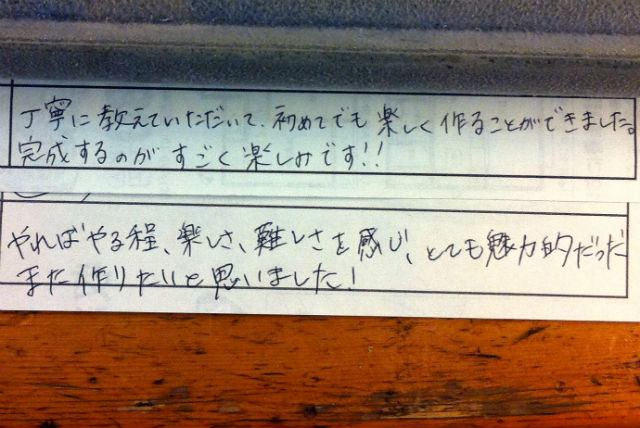 丁寧に教えていただいて、初めてでも楽しく作ることができました。
完成するのがすごく楽しみです!!
やればやる程、楽しさ、難しさを感じ、とても魅力的だった
また作りたいと思いました!